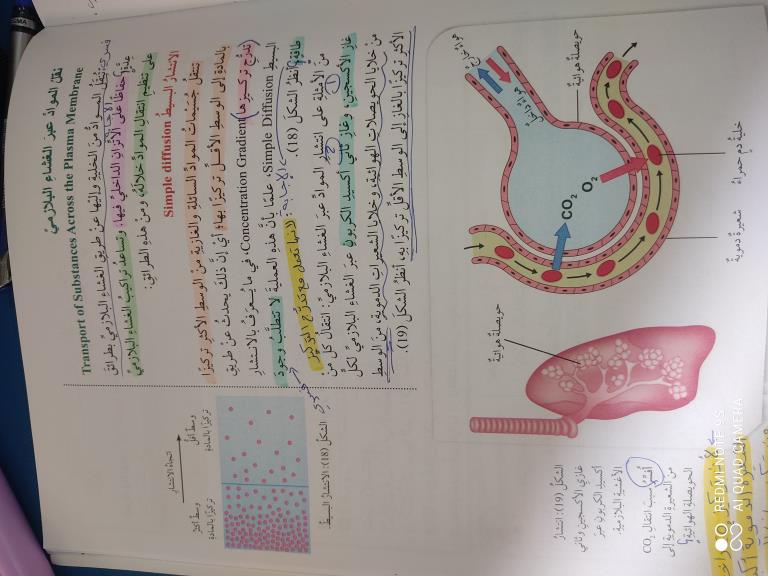 نقلُ الموادِّ عبرَ الغشاءِ البلازميِّ
Transport of Substances Across the Plasma Membrane
تُنقلُ الموادُّ منَ الخليةِ وإليْها عن طريقِ الغشاءِ البلازميِّ بطرائقَ
عدَّةٍ؛ حفاظًا على الاتزانِ الداخليِّ فيها. وتساعدُ تراكيبُ الغشاءِ البلازميِّ
على تنظيمِ انتقالِ الموادِّ خلالَهُ، ومنْ هذهِ الطرائقِ:
الانتشارُ البسيطُ Simple diffusion
تنتقلُ جُسيْماتُ الموادِّ السائلةِ والغازيةِ منَ الوسطِ الأكثرِ تركيزًا
بالمادةِ إلى الوسطِ الأقلِّ تركيزًا بها؛ أيْ إنَّ ذلكَ يحدثُ عنْ طريقِ
(تدرُّجِ تركيزِها) Concentration Gradient، في ما يُعرَفُ بالانتشارِ
البسيطِ Simple Diffusion، علمًا بأنَّ هذهِ العمليةَ لا تتطلَّبُ وجودَ
طاقةٍ، أنظرُ الشكلَ (18).
لأنها تعمل مع تدرج التركيز
منَ الأمثلةِ على انتشارِ الموادِّ عبرَ الغشاءِ البلازميِّ: انتقالُ كلٍّ منْ
غازِ الأكسجينِ، وغازِ ثاني أكسيدِ الكربونِ عبرَ الغشاءِ البلازميِّ لكلٍّ
منْ خلايا الحويصلاتِ الهوائيةِ، وخلايا الشعيراتِ الدمويةِ، منَ الوسطِ
الأكثرِ تركيزًا بالغازِ إلى الوسطِ الأقلِّ تركيزًا بهِ، أنظرُ الشكلَ (19).
اتجاهُ الانتشارِ
وسطٌ أكثرُ
تركيزًا بالمادةِ
وسطٌ أقلُّ
تركيزًا بالمادةِ
الشكلُ (18): الانتشارُ البسيطُ.
حويصلةٌ هوائيةٌ
CO2
O2
خليةُ دمٍ حمراءُ
شعيرةٌ دمويةٌ
حويصلةٌ هوائيةٌ
الشكلُ (19): انتشارُ
غازيِ الأكسجينِ وثاني
أكسيدِ الكربونِ عبرَ
الأغشيةِ البلازميةِ.
أُفسِّرُ سببَ انتقالِ CO2
منَ الشعيرةِ الدمويةِ إلى
الحويصلةِ الهوائيةِ.
REDMI NOTE 9S
AI QUAD CAMERA